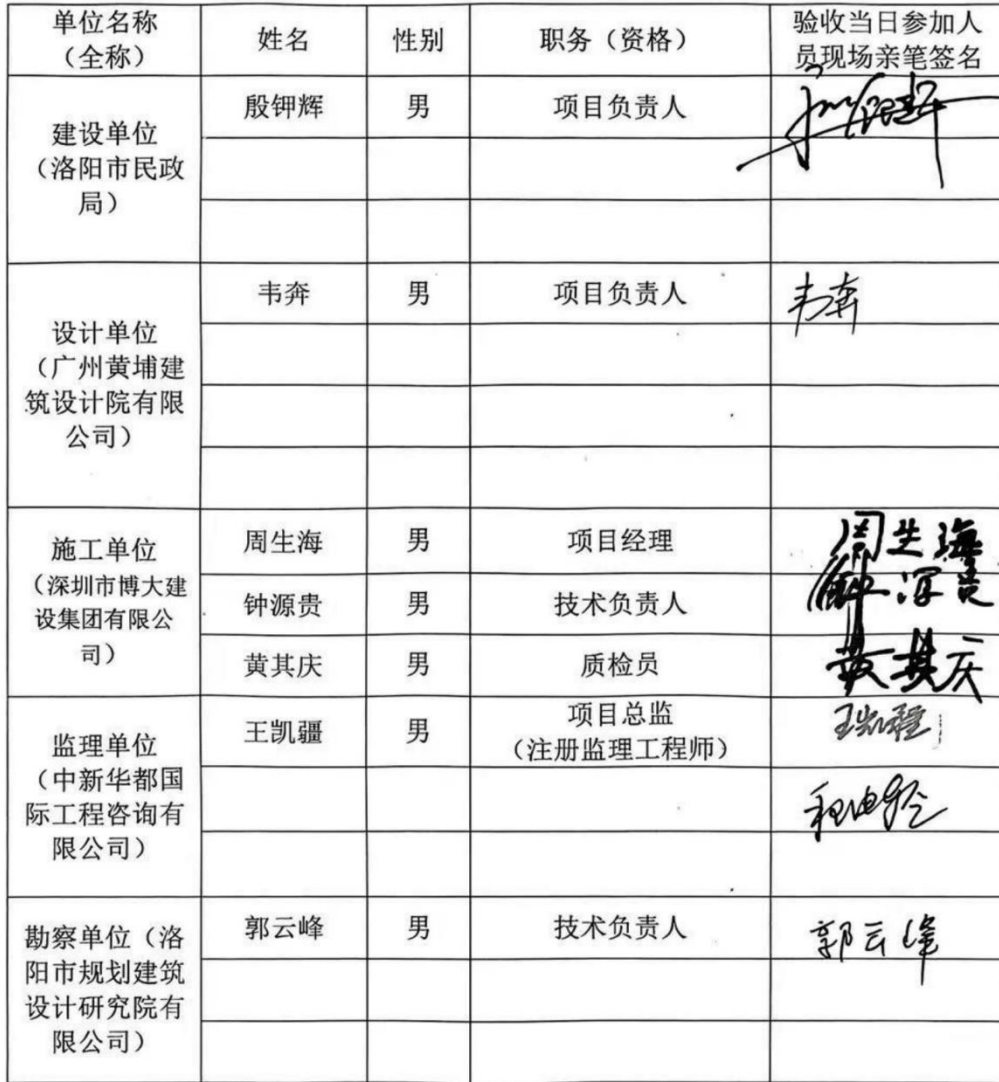 单位名称
（全称）
姓名
性别
职务（资格）
验收当日参加人
员现场亲笔签名
建设单位
（洛阳市民政
局）
殷钾辉
男
项目负责人
设计单位
（广州黄埔建
筑设计院有限
公司）
韦奔
男
项目负责人
韦奔
施工单位
（深圳市博大建
设集团有限公
司）
周生海
男
项目经理
周生海
钟源贵
男
技术负责人
钟源贵
黄其庆
男
质检员
黄其庆
监理单位
（中新华都国
际工程咨询有
限公司）
王凯疆
男
项目总监
（注册监理工程师）
王凯疆
勘察单位（洛
阳市规划建筑
设计研究院有
限公司）
郭云峰
男
技术负责人
郭云峰